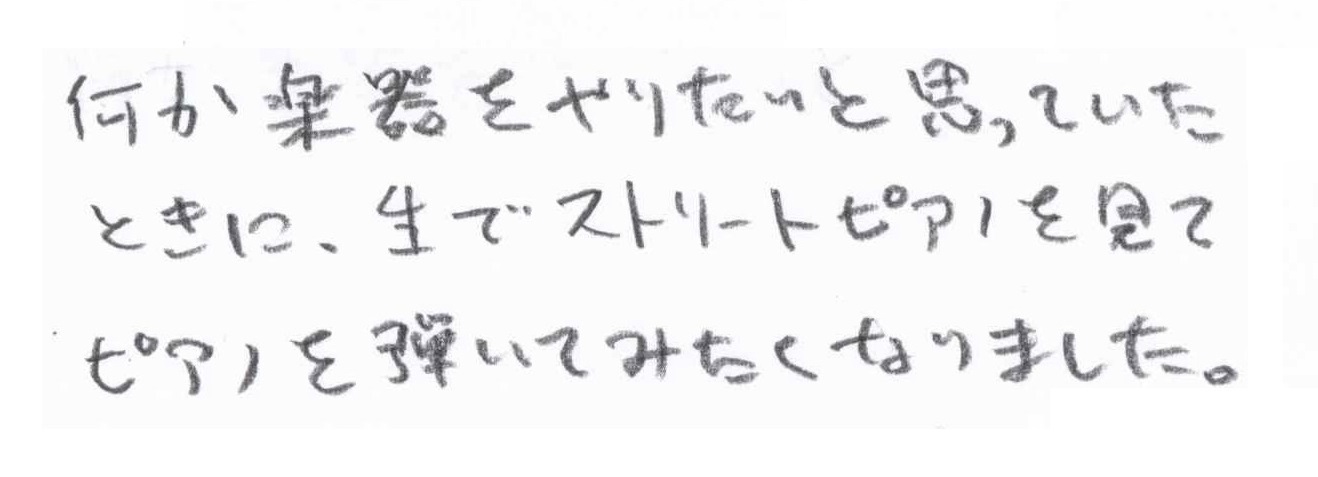 何か楽器をやりたいと思っていた
ときに、生でストリートピアノを見て
ピアノを弾いてみたくなりました。